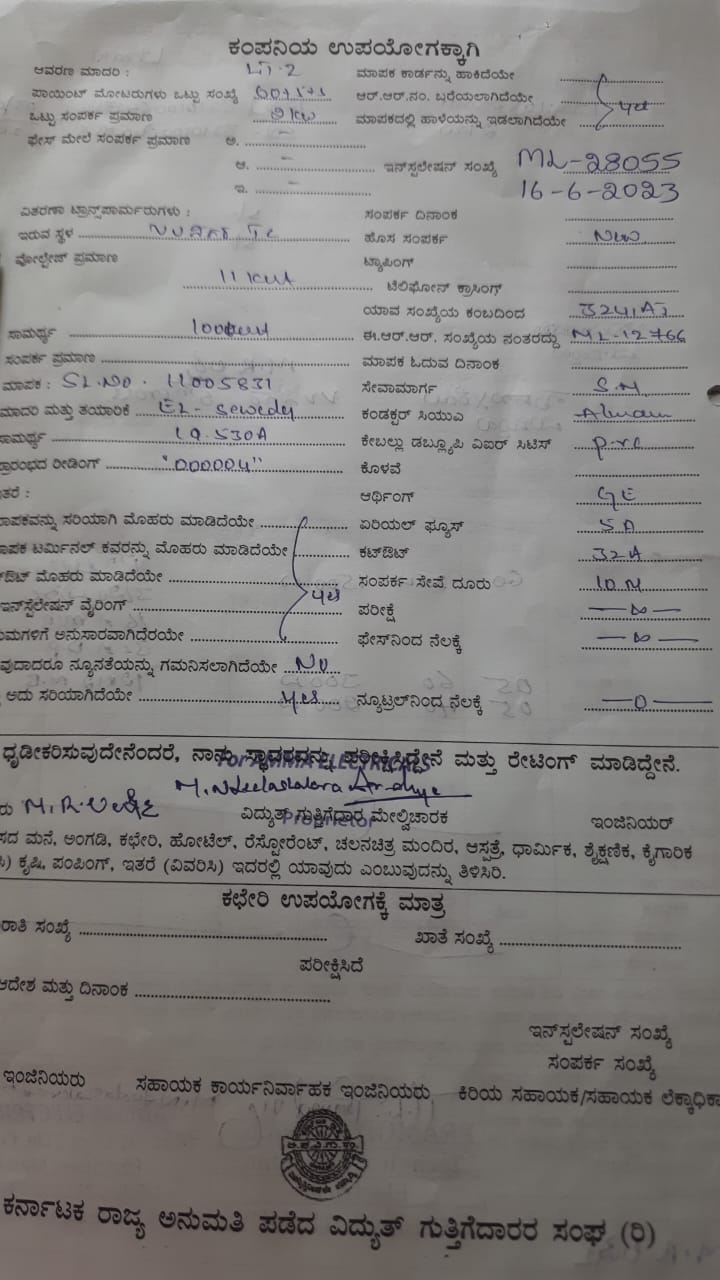 ಕಂಪನಿಯ ಉಪಯೋಗಕ್ಕಾಗಿ
ಆವರಣ ಮಾದರಿ : LT-2 ಮಾಪಕ ಕಾರ್ಡನ್ನು ಹಾಕಿದೆಯೇ
ಪಾಯಿಂಟ್ ಮೋಟರುಗಳು ಒಟ್ಟು ಸಂಖ್ಯೆ ಆರ್.ಆರ್.ನಂ. ಬರೆಯಲಾಗಿದೆಯೇ yes
ಒಟ್ಟು ಸಂಪರ್ಕ ಪ್ರಮಾಣ ಮಾಪಕದಲ್ಲಿ ಹಾಳೆಯನ್ನು ಇಡಲಾಗಿದೆಯೇ
ಫೇಸ್ ಮೇಲೆ ಸಂಪರ್ಕ ಪ್ರಮಾಣ ಅ.
ಆ. – ಇನ್‌ಸ್ಪಲೇಷನ್ ಸಂಖ್ಯೆ ML-28055
ಇ. – 16-6-2023
ವಿತರಣಾ ಟ್ರಾನ್ಸ್‌ಪಾರ್ಮರುಗಳು : ಸಂಪರ್ಕ ದಿನಾಂಕ
ಇರುವ ಸ್ಥಳ ಹೊಸ ಸಂಪರ್ಕ New
ವೋಲ್ಟೇಜ್ ಪ್ರಮಾಣ ಟ್ಯಾಪಿಂಗ್
11 ಟೆಲಿಫೋನ್ ಕ್ರಾಸಿಂಗ್
ಯಾವ ಸಂಖ್ಯೆಯ ಕಂಬದಿಂದ
ಸಾಮರ್ಥ್ಯ ಈ.ಆರ್.ಆರ್. ಸಂಖ್ಯೆಯ ನಂತರದ್ದು ML-12766
ಸಂಪರ್ಕ ಪ್ರಮಾಣ ಮಾಪಕ ಓದುವ ದಿನಾಂಕ
ಮಾಪಕ : SL.No. 11005831 ಸೇವಾಮಾರ್ಗ S.M
ಮಾದರಿ ಮತ್ತು ತಯಾರಿಕೆ EL-Sewedy ಕಂಡಕ್ಟರ್ ಸಿಯುಎ
ಸಾಮರ್ಥ್ಯ ಕೇಬಲ್ಲು ಡಬ್ಲ್ಯೂಪಿ ವಿಐರ್ ಸಿಟಿಸ್ p.v.c
ರೀಡಿಂಗ್ "000004" ಕೊಳವೆ
ಆರ್ಥಿಂಗ್ GE
ಸರಿಯಾಗಿ ಮೊಹರು ಮಾಡಿದೆಯೇ ಏರಿಯಲ್ ಫ್ಯೂಸ್ 5A
ಟರ್ಮಿನಲ್ ಕವರನ್ನು ಮೊಹರು ಮಾಡಿದೆಯೇ ಕಟ್‌ಔಟ್ 32A
ಮೊಹರು ಮಾಡಿದೆಯೇ yes ಸಂಪರ್ಕ ಸೇವೆ ದೂರು 10M
ಇನ್‌ಸ್ಪಲೇಷನ್ ವೈರಿಂಗ್ ಪರೀಕ್ಷೆ —∞—
ಅನುಸಾರವಾಗಿದೆರಯೇ ಫೇಸ್‌ನಿಂದ ನೆಲಕ್ಕೆ —∞—
ನ್ಯೂನತೆಯನ್ನು ಗಮನಿಸಲಾಗಿದೆಯೇ No
ಅದು ಸರಿಯಾಗಿದೆಯೇ yes ನ್ಯೂಟ್ರಲ್‌ನಿಂದ ನೆಲಕ್ಕೆ —0—
ಧೃಡೀಕರಿಸುವುದೇನೆಂದರೆ, ನಾನು ಸ್ಥಾವರವನ್ನು ಪರೀಕ್ಷಿಸಿದ್ದೇನೆ ಮತ್ತು ರೇಟಿಂಗ್ ಮಾಡಿದ್ದೇನೆ.
For ELECTRICALS
M.R. ವಿದ್ಯುತ್ ಗುತ್ತಿಗೆದಾರ ಮೇಲ್ವಿಚಾರಕ ಇಂಜಿನಿಯರ್
Proprietor
ಮನೆ, ಅಂಗಡಿ, ಕಛೇರಿ, ಹೋಟೆಲ್, ರೆಸ್ಟೋರೆಂಟ್, ಚಲನಚಿತ್ರ ಮಂದಿರ, ಆಸ್ಪತ್ರೆ, ಧಾರ್ಮಿಕ, ಶೈಕ್ಷಣಿಕ, ಕೈಗಾರಿಕ
ಕೃಷಿ, ಪಂಪಿಂಗ್, ಇತರೆ (ವಿವರಿಸಿ) ಇದರಲ್ಲಿ ಯಾವುದು ಎಂಬುವುದನ್ನು ತಿಳಿಸಿರಿ.
ಕಛೇರಿ ಉಪಯೋಗಕ್ಕೆ ಮಾತ್ರ
ಸಂಖ್ಯೆ ಖಾತೆ ಸಂಖ್ಯೆ
ಪರೀಕ್ಷಿಸಿದೆ
ಆದೇಶ ಮತ್ತು ದಿನಾಂಕ
ಇನ್‌ಸ್ಪಲೇಷನ್ ಸಂಖ್ಯೆ
ಸಂಪರ್ಕ ಸಂಖ್ಯೆ
ಇಂಜಿನಿಯರು ಸಹಾಯಕ ಕಾರ್ಯನಿರ್ವಾಹಕ ಇಂಜಿನಿಯರು ಕಿರಿಯ ಸಹಾಯಕ/ಸಹಾಯಕ
ಕರ್ನಾಟಕ ರಾಜ್ಯ ಅನುಮತಿ ಪಡೆದ ವಿದ್ಯುತ್ ಗುತ್ತಿಗೆದಾರರ ಸಂಘ (ರಿ)